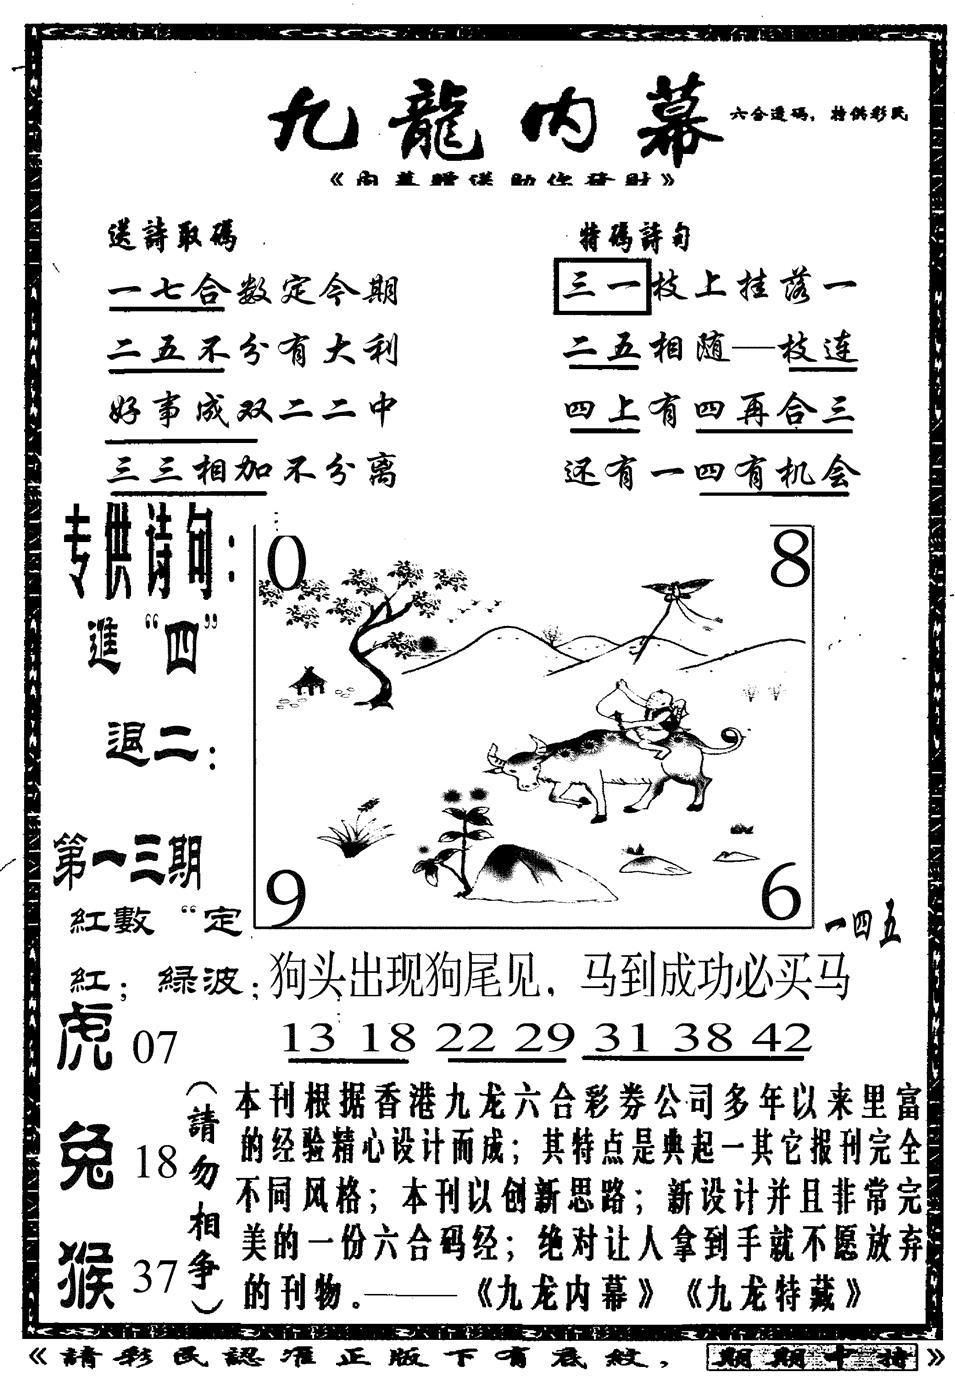 九龍内幕
六合透碼，特供彩民
《内幕贈送助你發財》
送詩取碼
一七合数定今期
二五不分有大利
好事成双二二中
三三相加不分离
特碼詩句
三一枝上挂落一
二五相随—枝连
四上有四再合三
还有一四有机会
专供诗句：
進“四”
退二：
第一三期
紅數“定
紅；綠波；
0
8
9
6
一四五
狗头出现狗尾见，马到成功必买马
13 18 22 29 31 38 42
虎 07
兔 18
猴 37
（請勿相争）
本刊根据香港九龙六合彩券公司多年以来里富
的经验精心设计而成；其特点是典起一其它报刊完全
不同风格；本刊以创新思路；新设计并且非常完
美的一份六合码经；绝对让人拿到手就不愿放弃
的刊物。——《九龙内幕》《九龙特藏》
《請彩民認准正版下有底紋，期期中特》